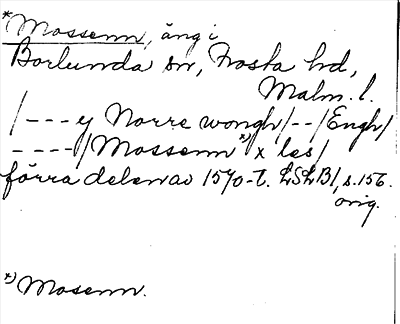 *Mossenn, äng i
Borlunda sn, Frosta hd,
Malm. l.
/---- y Norre wongh/--/Engh/
----/Mossenn *) x les/
förra delen av 1570-t. LSLB1, s. 156.
orig.
*) Mosenn.